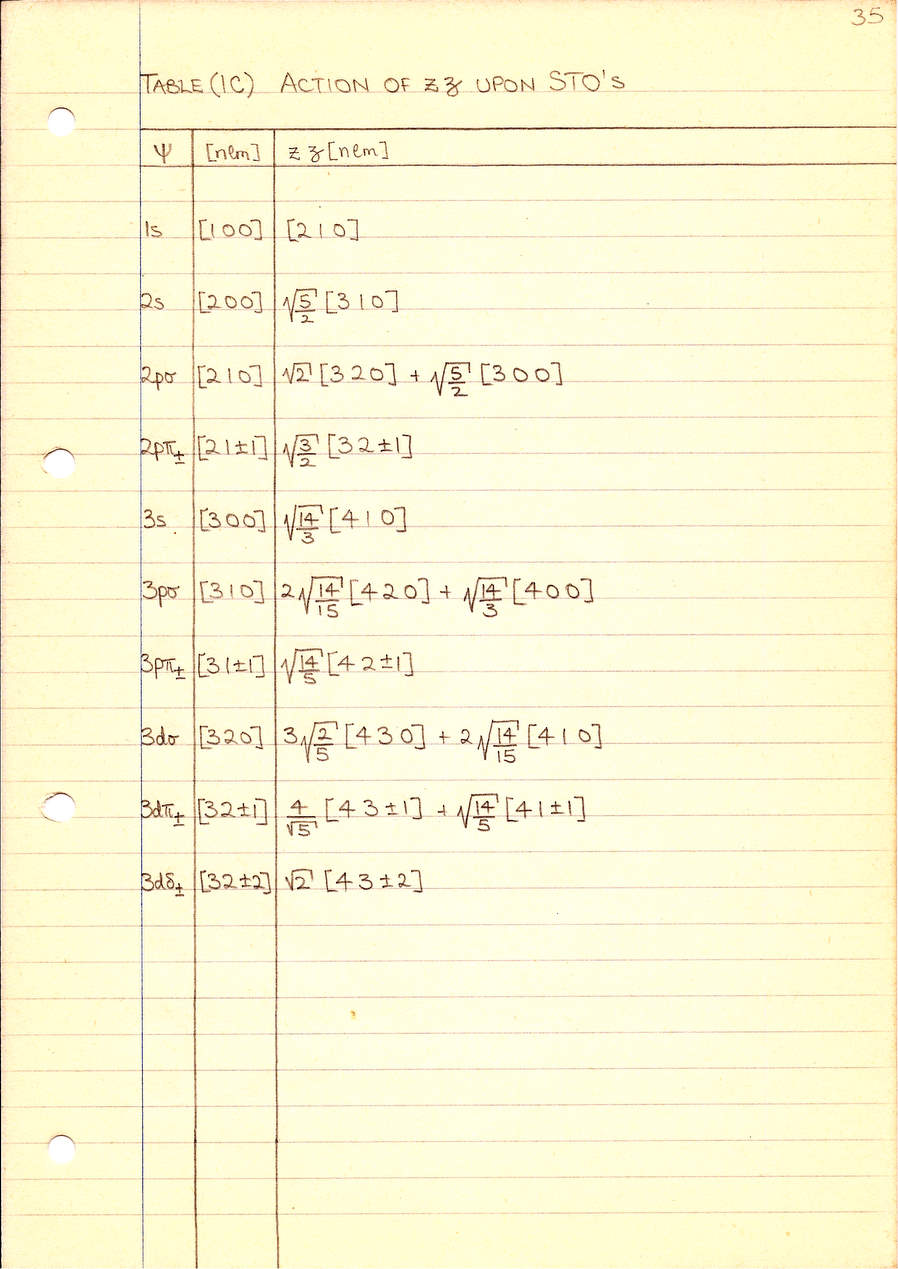 35
TABLE (1C) ACTION OF z ʒ UPON STO'S
ψ [nℓm] z ʒ [nℓm]
1s [100] [210]
2s [200] √5/2 [310]
2pσ [210] √2 [320] + √5/2 [300]
2pπ± [21±1] √3/2 [32±1]
3s [300] √14/3 [410]
3pσ [310] 2√14/15 [420] + √14/3 [400]
3pπ± [31±1] √14/5 [42±1]
3dσ [320] 3√2/5 [430] + 2√14/15 [410]
3dπ± [32±1] 4/√5 [43±1] + √14/5 [41±1]
3dδ± [32±2] √2 [43±2]